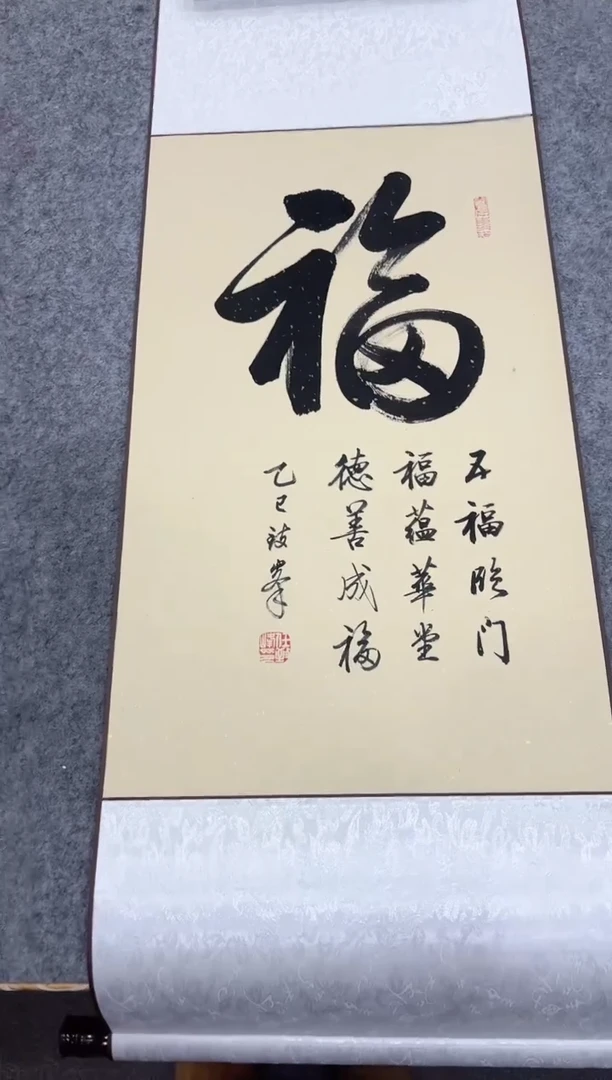 福
五福临门
福蕴華堂
德善成福
乙巳